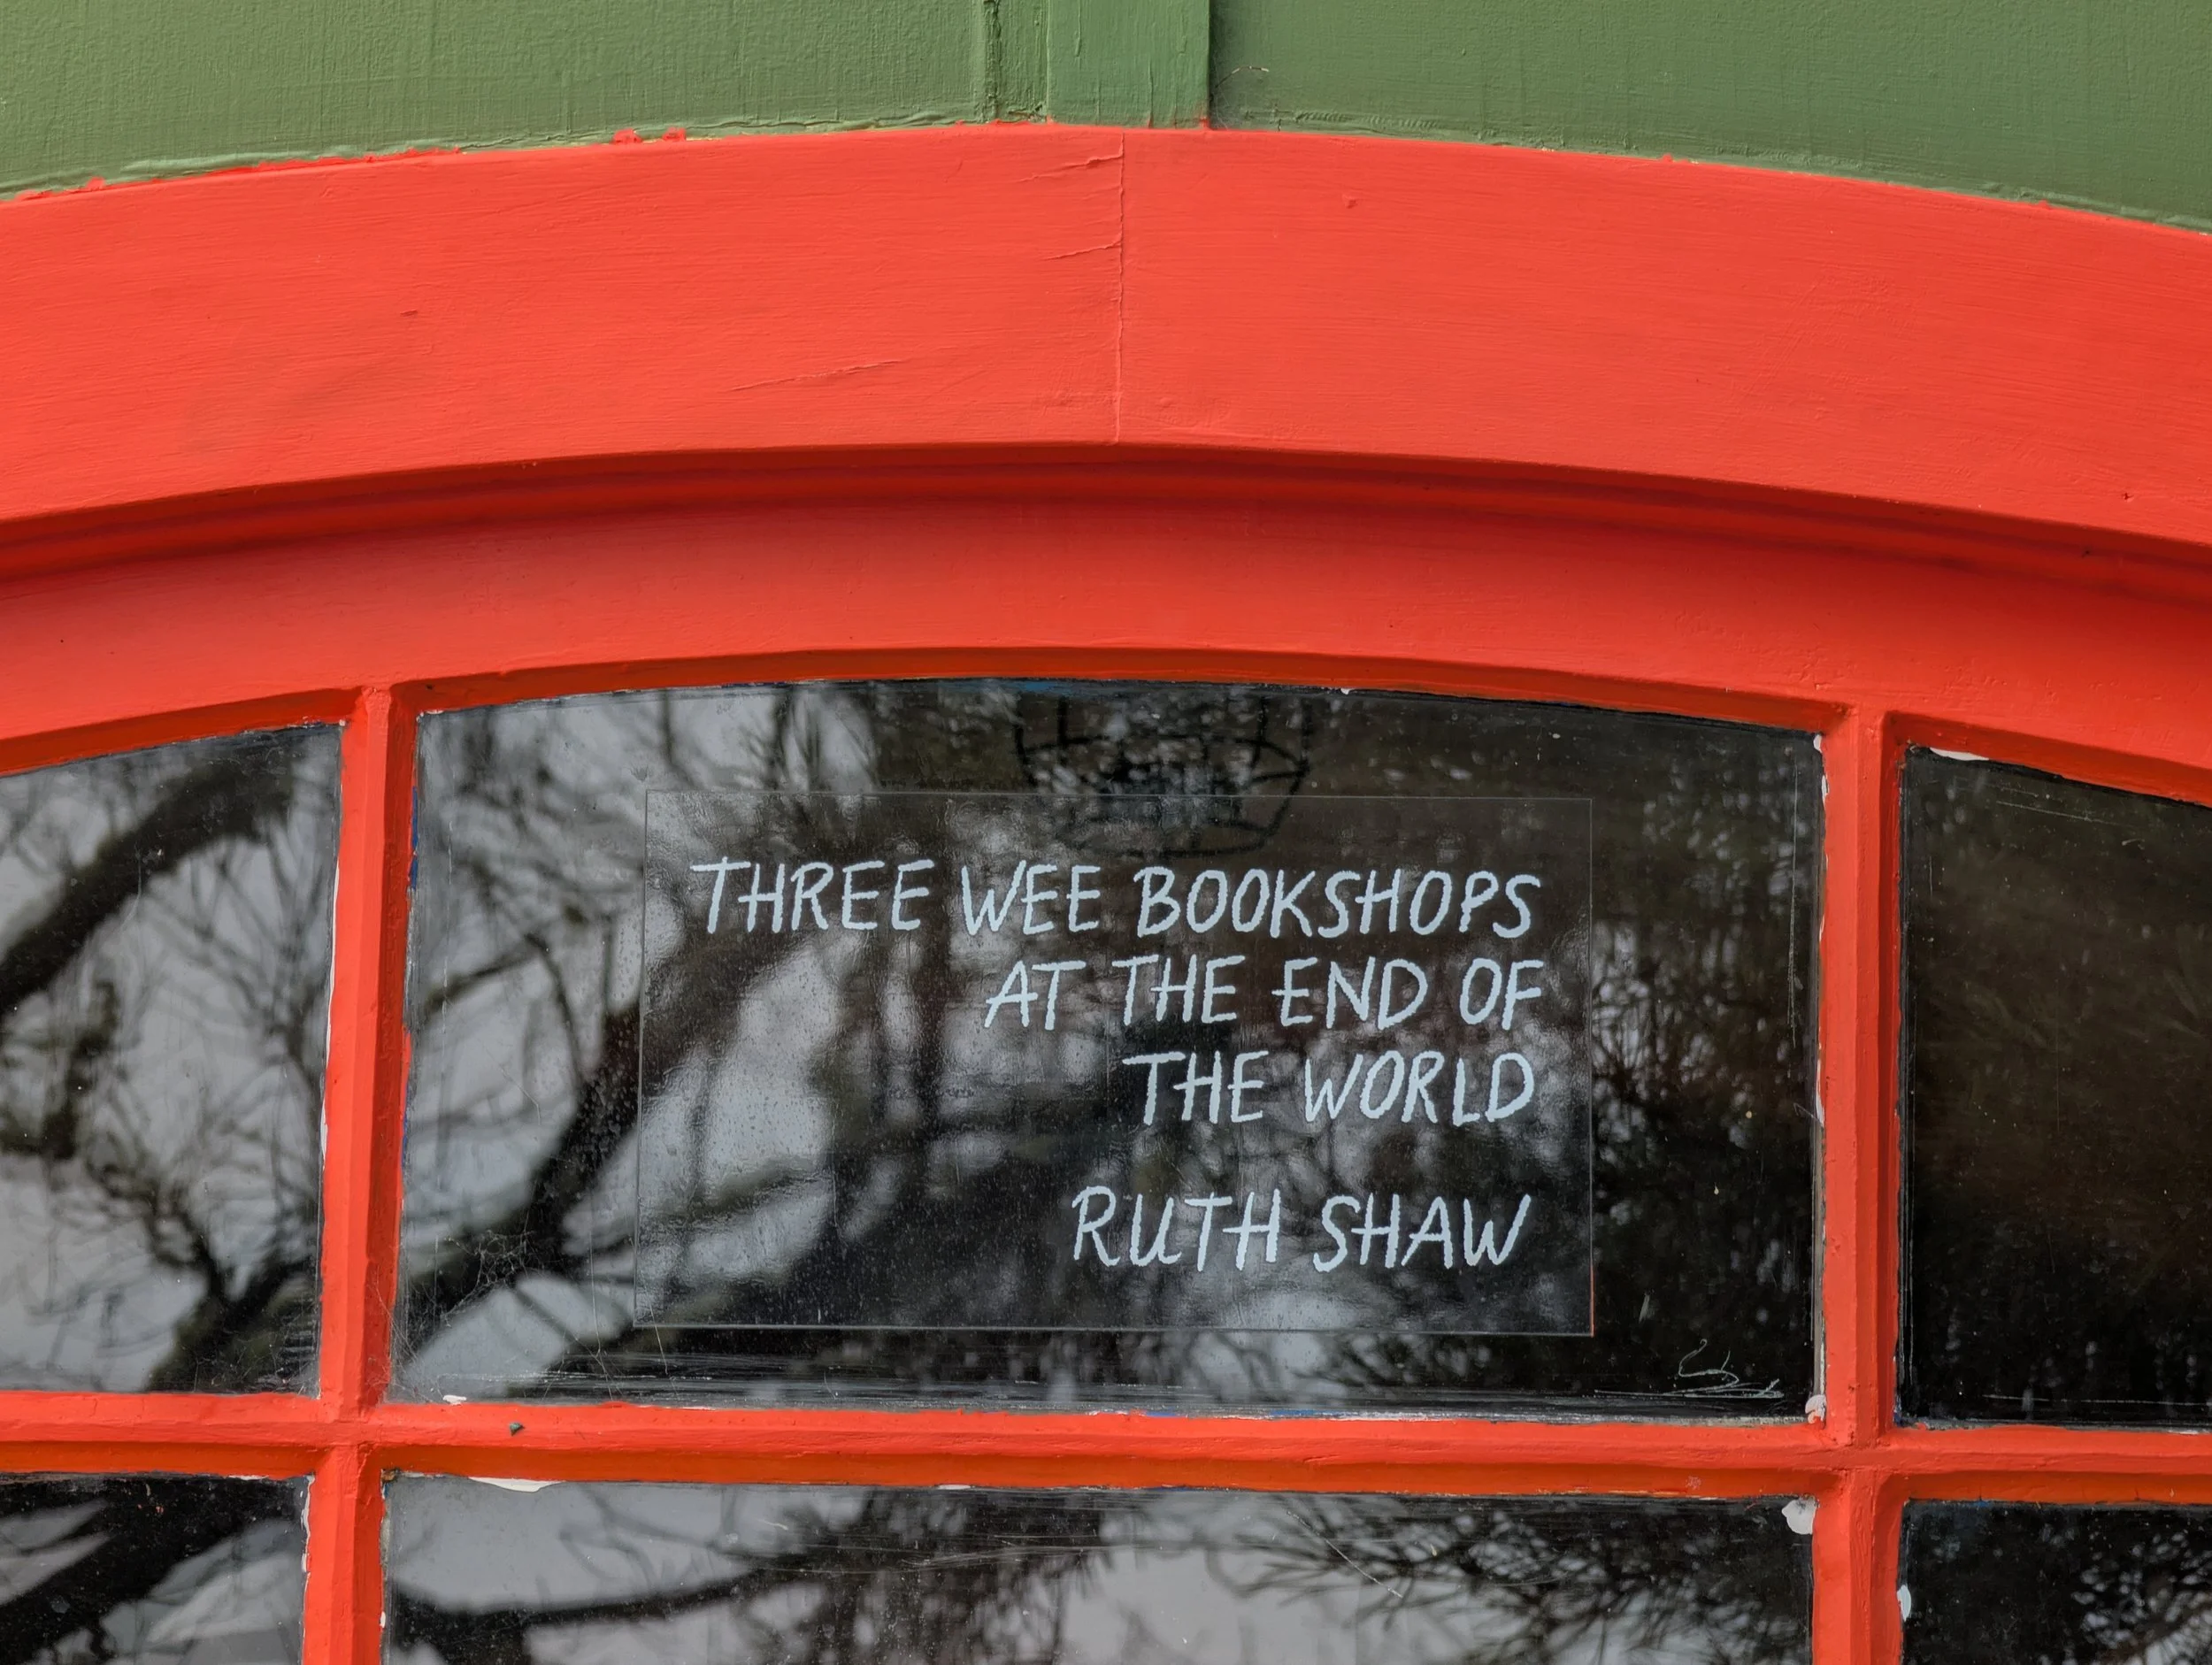 THREE WEE BOOKSHOPS
AT THE END OF
THE WORLD
RUTH SHAW